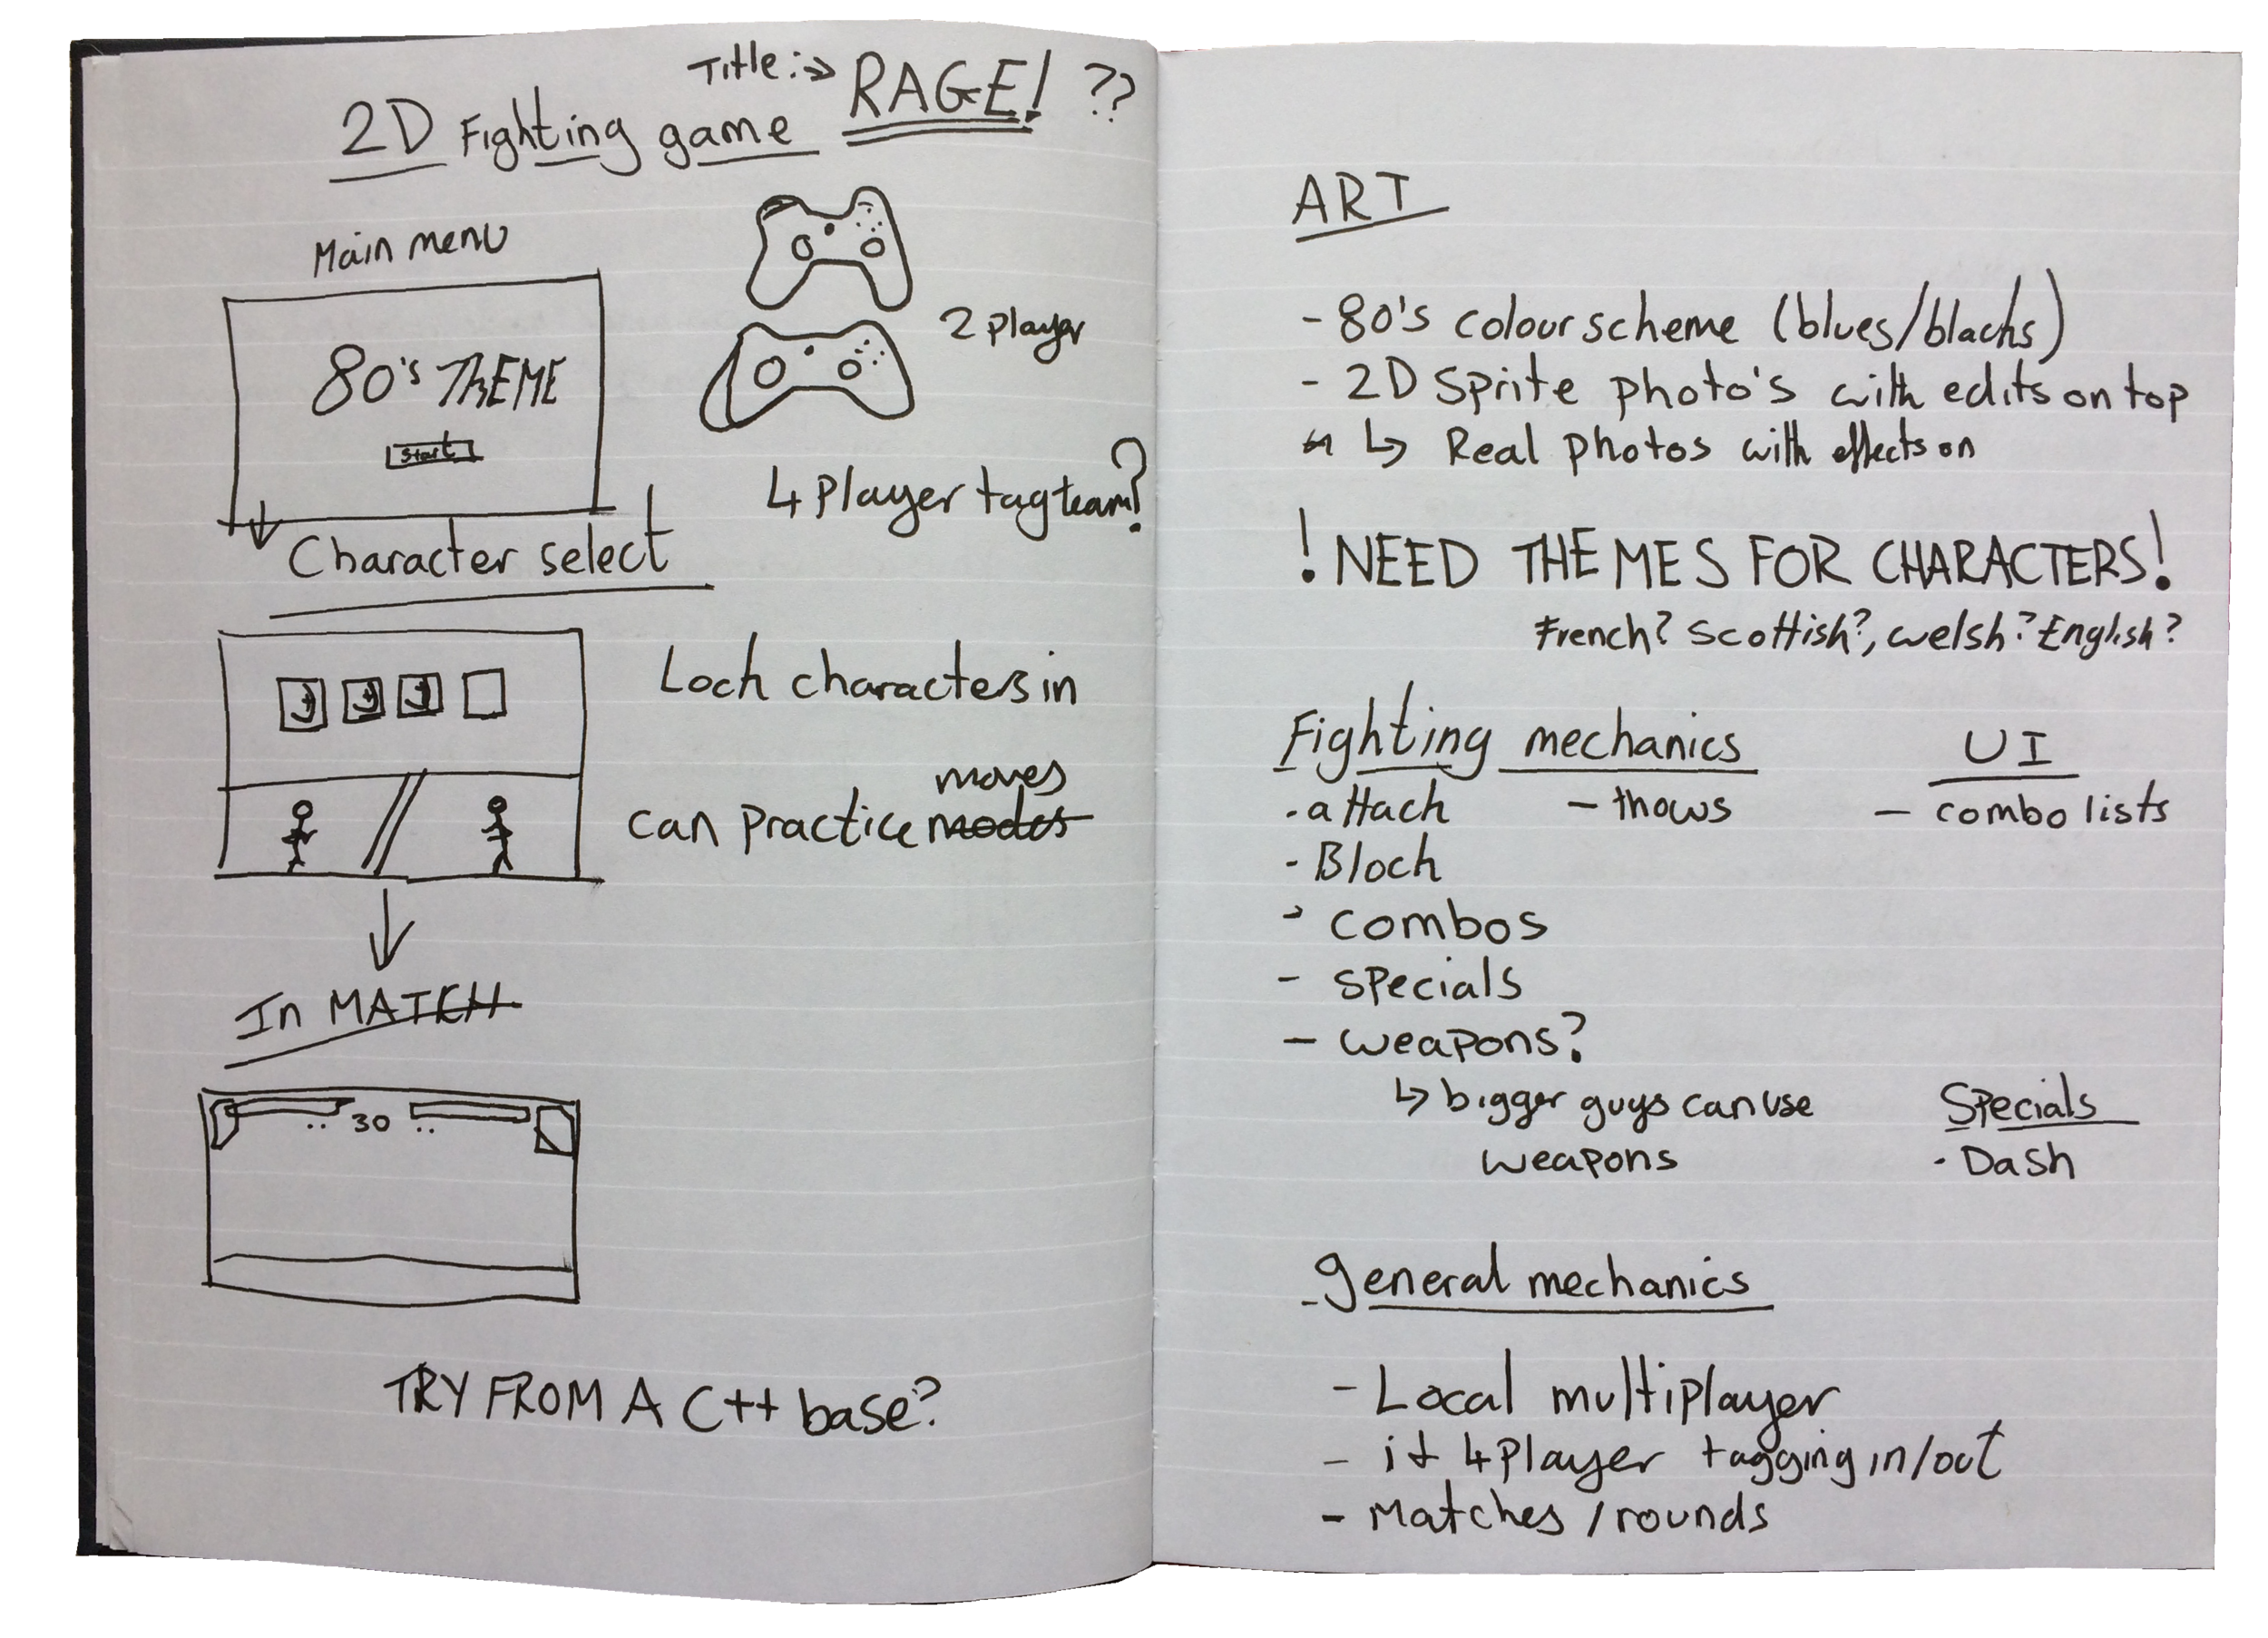 Title:→ RAGE! ??
2D Fighting game
Main menu
80's THEME
Start
2 player
4 Player tag team?
Character select
Lock characters in
moves
can practice modes
In MATCH
30
TRY FROM A C++ base?
ART
- 80's colour scheme (blues/blacks)
- 2D Sprite photo's with edits on top
↳ Real photos with effects on
! NEED THEMES FOR CHARACTERS!
French? Scottish?, welsh? English?
Fighting mechanics
- attack
- thows
- Block
- combos
- specials
- weapons?
↳ bigger guys can use
weapons
UI
- combo lists
Specials
- Dash
General mechanics
- Local multiplayer
- if 4 Player tagging in/out
- Matches / rounds